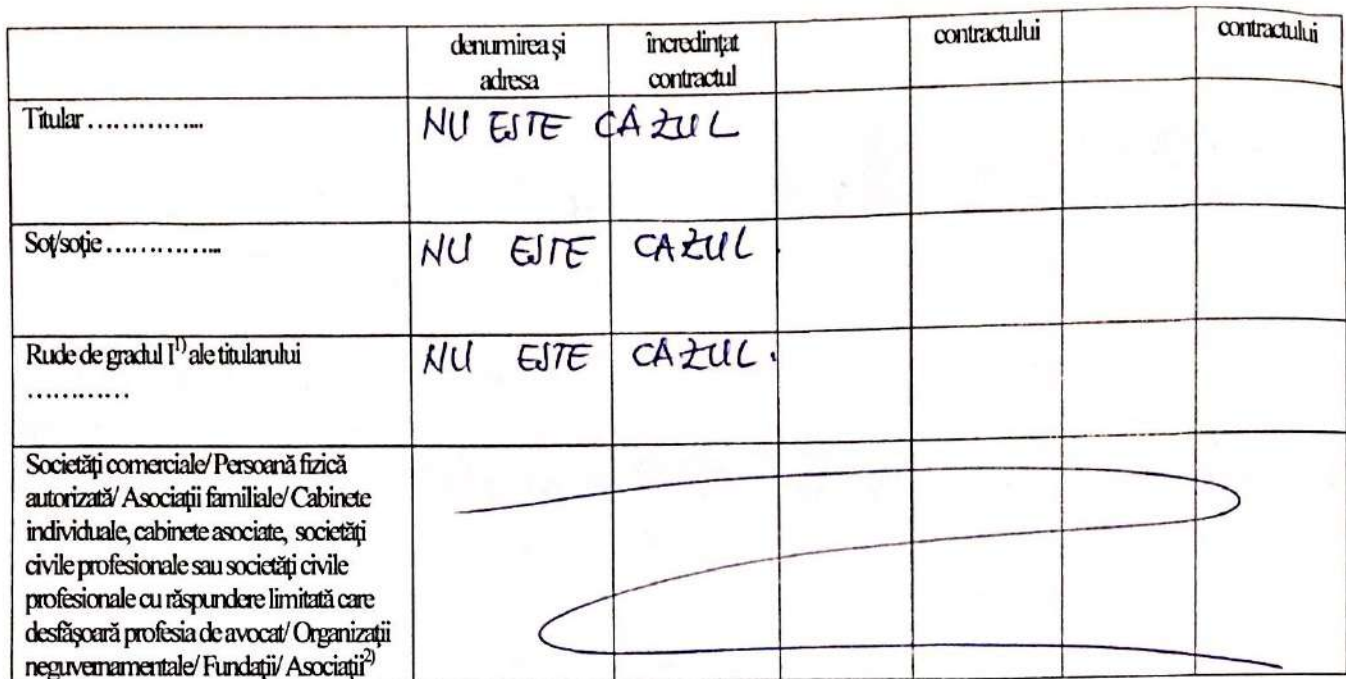 denumirea și încredințat contractului contractului
adresa contractul
Titular ………….. NU ESTE CAZUL
Soț/soție ………….. NU ESTE CAZUL.
Rude de gradul I¹⁾ ale titularului NU ESTE CAZUL.
…………
Societăți comerciale/ Persoană fizică
autorizată/ Asociații familiale/ Cabinete
individuale, cabinete asociate, societăți
civile profesionale sau societăți civile
profesionale cu răspundere limitată care
desfășoară profesia de avocat/ Organizații
neguvernamentale/ Fundații/ Asociații²⁾